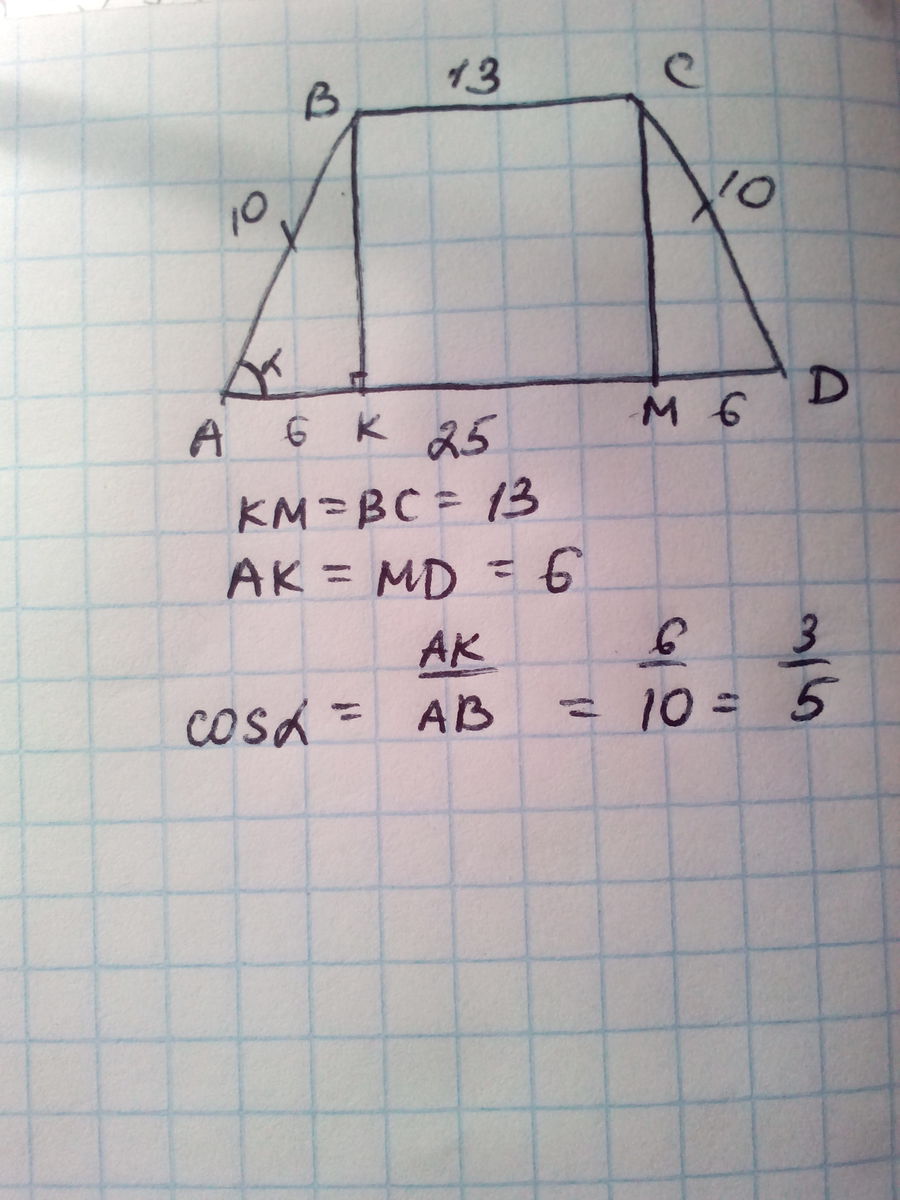 B 13 C
10 10
α
A 6 K 25 M 6 D
KM = BC = 13
AK = MD = 6
cosα = AK/AB = 6/10 = 3/5